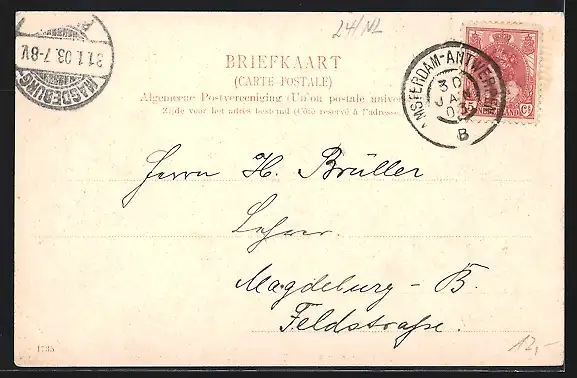 24/NL
BRIEFKAART
(CARTE POSTALE)
Algemeene Postvereeniging (Union postale
Zijde voor het adres bestemd (Côté réservé à l'adresse
MAGDEBURG
31.1.03.7-8V.
AMSTERDAM-ANTWERPEN
30
JAN
B
Herrn H. Brüller
Lehrer
Magdeburg - B.
Feldstraße.
12,-